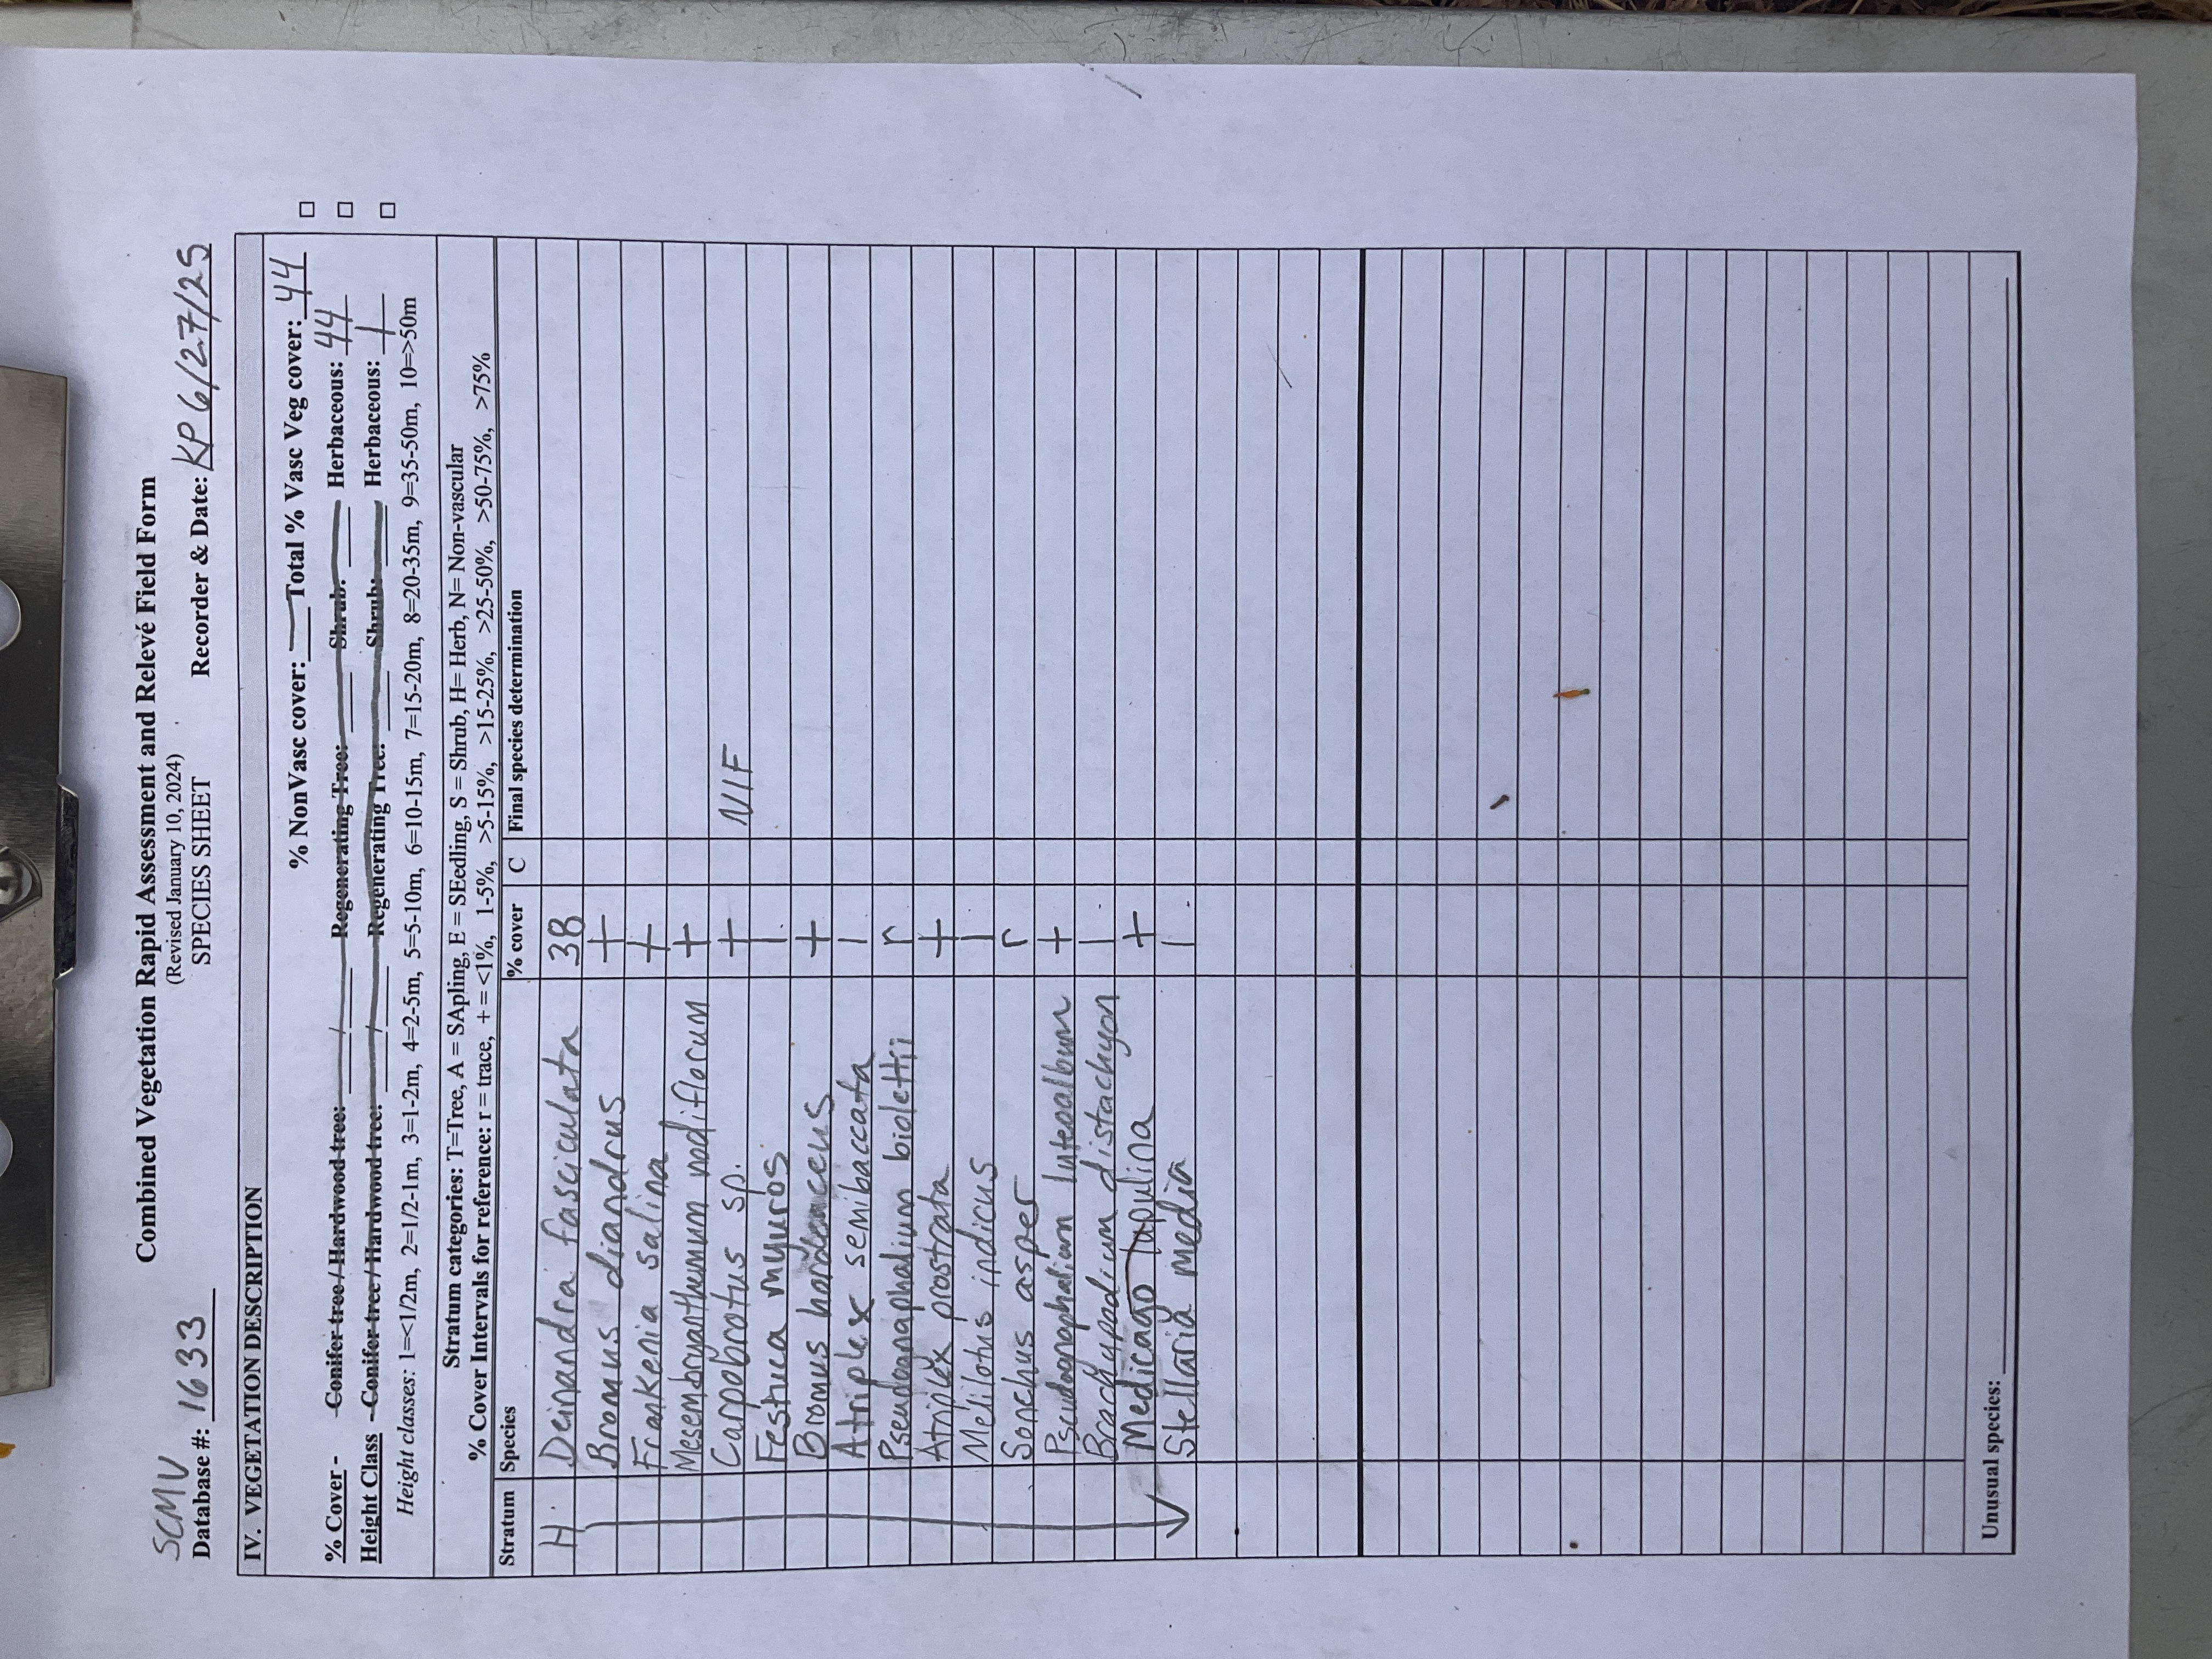 Combined Vegetation Rapid Assessment and Relevé Field Form
(Revised January 10, 2024)
SCMV
SPECIES SHEET
Database #: 16633 Recorder & Date: KP 6/27/25
IV. VEGETATION DESCRIPTION
% NonVasc cover: Total % Vasc Veg cover: 44
% Cover - Conifer tree / Hardwood tree: / Regenerating Tree: Shrub: Herbaceous: 44
Height Class - Conifer tree / Hardwood tree: / Regenerating Tree: Shrub: Herbaceous: 1
Height classes: 1=<1/2m, 2=1/2-1m, 3=1-2m, 4=2-5m, 5=5-10m, 6=10-15m, 7=15-20m, 8=20-35m, 9=35-50m, 10=>50m
Stratum categories: T=Tree, A = SApling, E = SEedling, S = Shrub, H= Herb, N= Non-vascular
% Cover Intervals for reference: r = trace, + = <1%, 1-5%, >5-15%, >15-25%, >25-50%, >50-75%, >75%
Stratum Species % cover C Final species determination
H Deinandra fasciculata 38
Bromus diandrus +
Frankenia salina +
Mesembryanthemum nodiflorum +
Carpobrotus sp. + NIF
Festuca myuros 1
Bromus hordeaceus +
Atriplex semibaccata 1
Pseudognaphalium biolettii r
Atriplex prostrata +
Melilotus indicus 1
Sonchus asper r
Pseudognaphalium luteoalbum +
Brachypodium distachyon 1
Medicago lupulina +
Stellaria media 1
Unusual species: